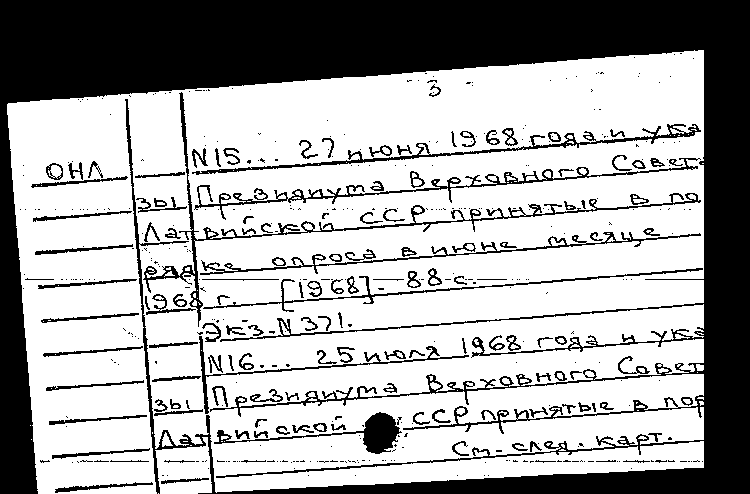 3
N15... 27 июня 1968 года и ука
ОНЛ
зы Президиума Верховного Совета
Латвийской ССР, принятые в по
рядке опроса в июне месяце
1968 г. [1968]. 88 с.
Экз. N 371.
N16... 25 июля 1968 года и ука
зы Президиума Верховного Совет
Латвийской ССР, принятые в пор
См. след. карт.